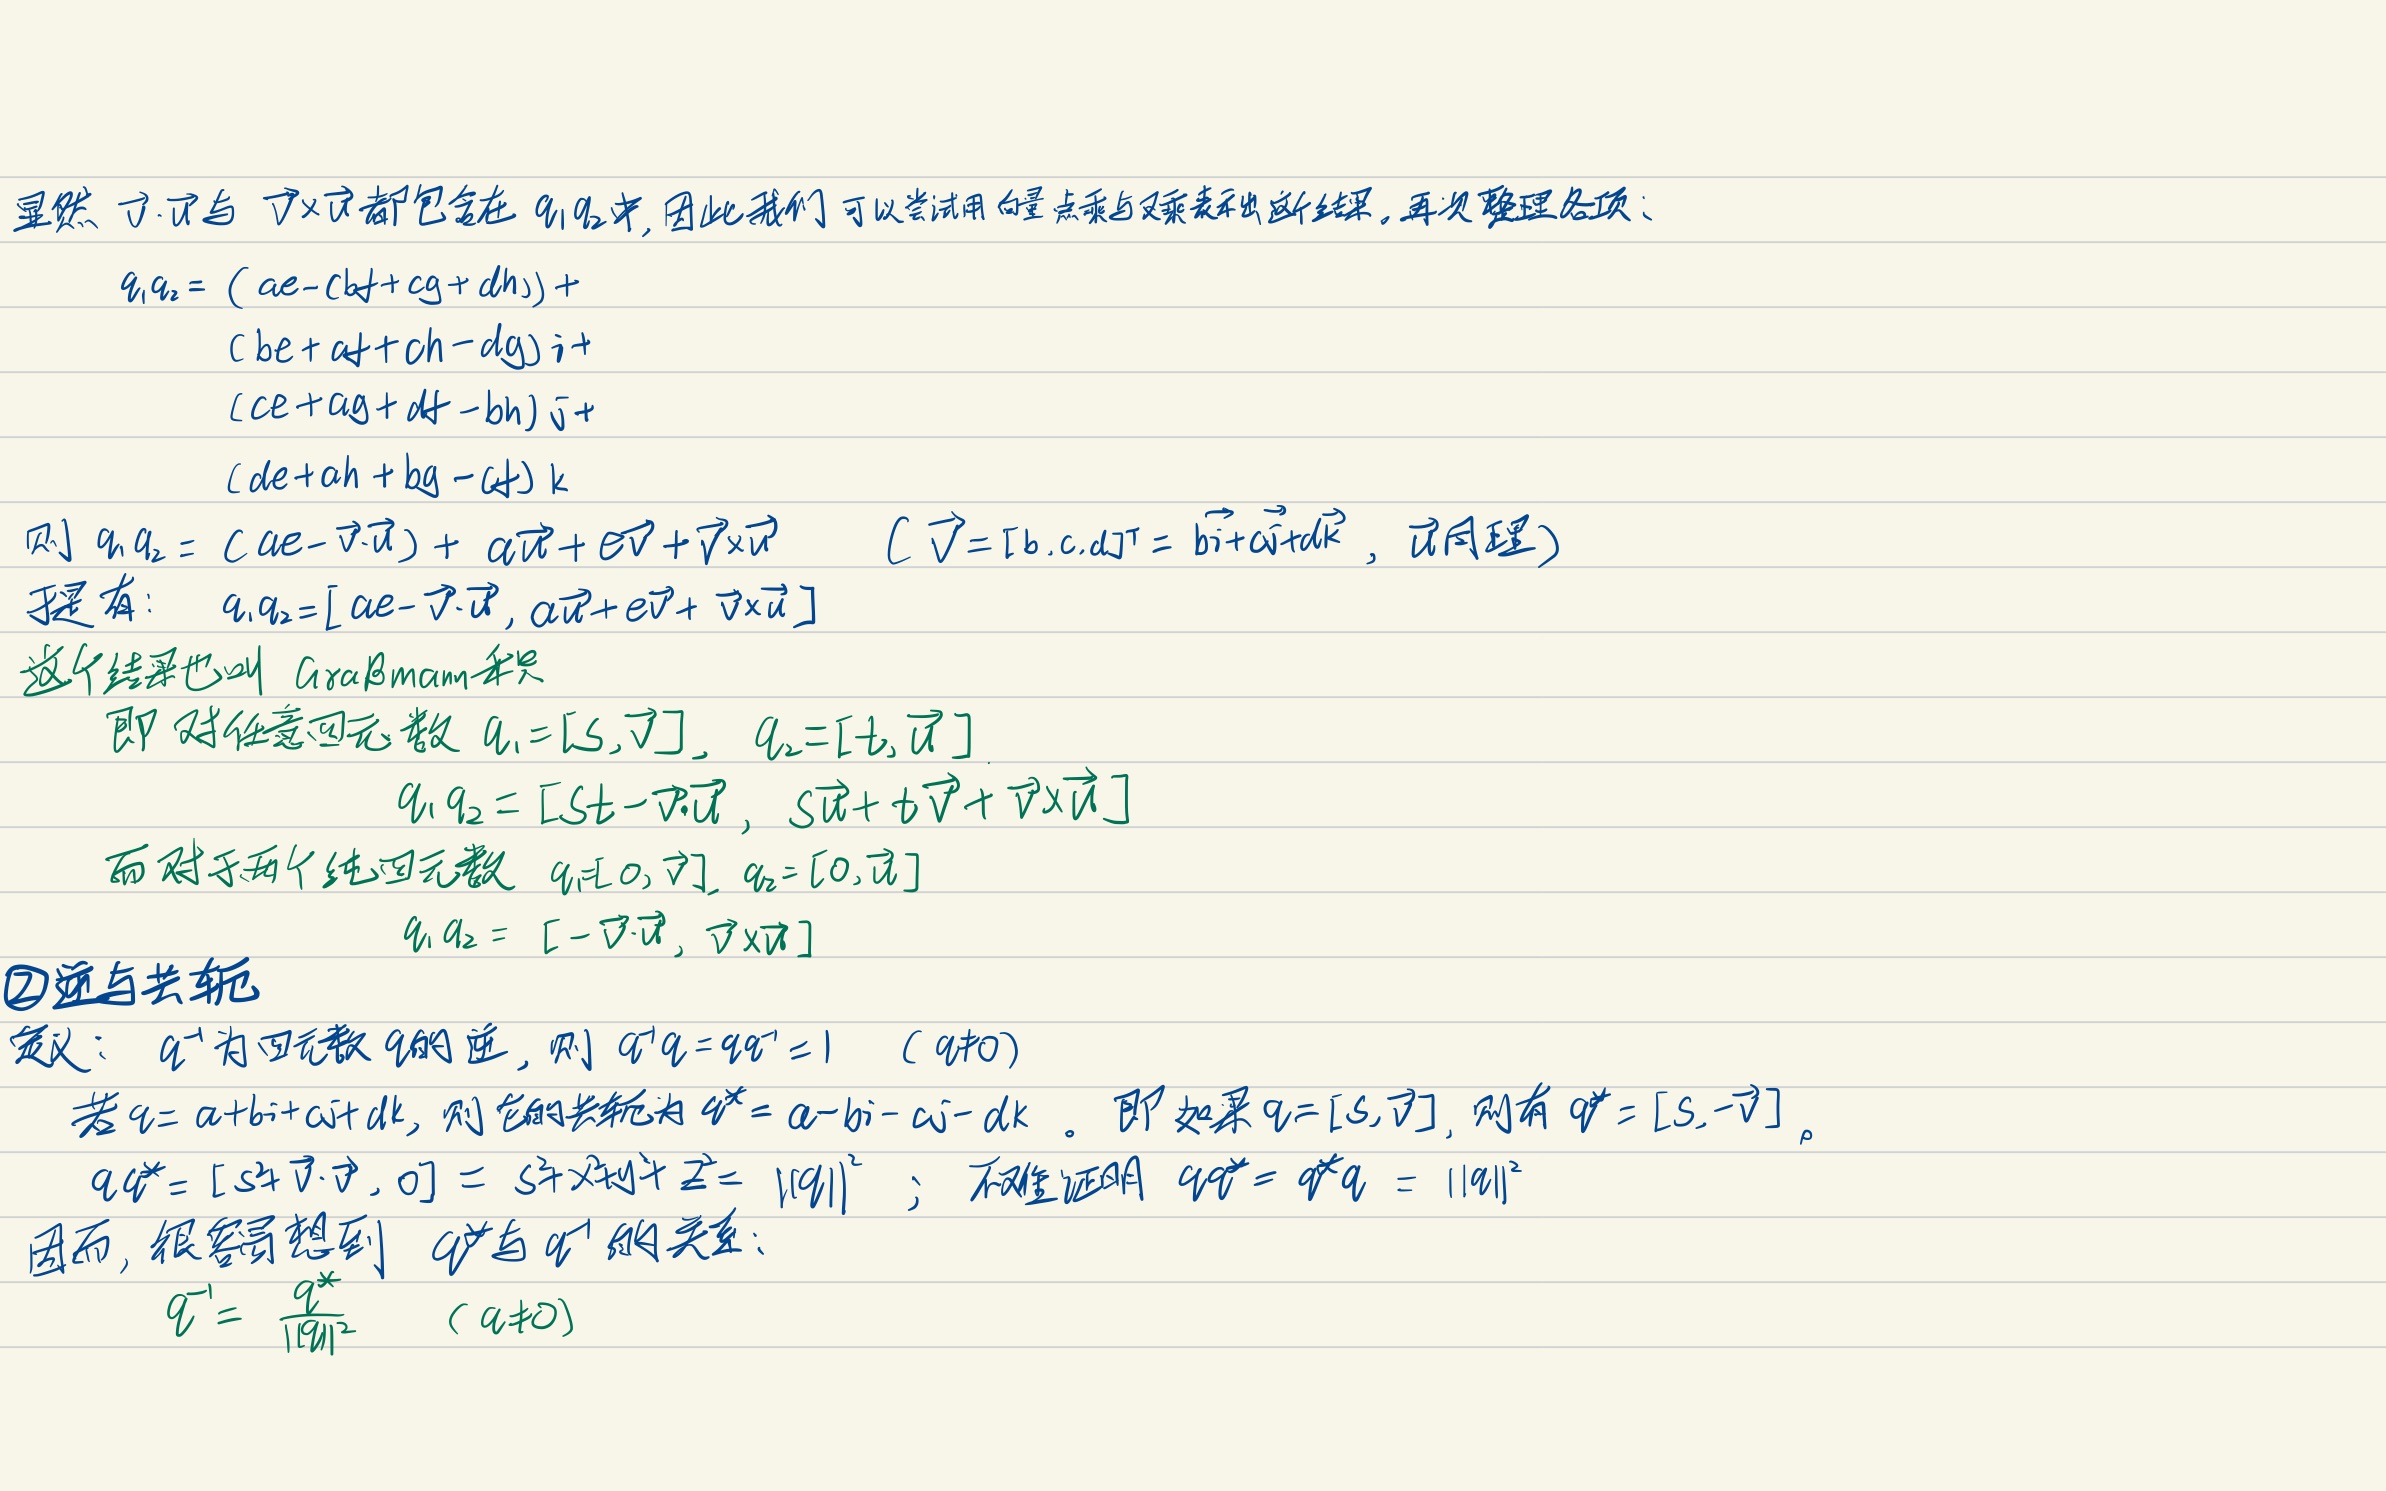 显然 v⃗·u⃗ 与 v⃗×u⃗ 都包含在 q₁q₂中,因此我们可以尝试用向量点乘与叉乘表示出这个结果。再次整理各项:
q₁q₂ = (ae-(bf+cg+dh))+
(be+af+ch-dg)i+
(ce+ag+df-bh)j+
(de+ah+bg-cf)k
则 q₁q₂ = (ae-v⃗·u⃗) + au⃗+ev⃗+v⃗×u⃗ (v⃗=[b,c,d]ᵀ = bi⃗+cj⃗+dk⃗, u⃗同理)
于是有: q₁q₂=[ae-v⃗·u⃗, au⃗+ev⃗+v⃗×u⃗]
这个结果也叫 Graßmann积
即 对任意四元数 q₁=[s,v⃗], q₂=[t,u⃗]
q₁q₂=[st-v⃗·u⃗, su⃗+tv⃗+v⃗×u⃗]
而对于两个纯四元数 q₁=[0,v⃗], q₂=[0,u⃗]
q₁q₂ = [-v⃗·u⃗, v⃗×u⃗]
②逆与共轭
定义: q⁻¹为四元数q的逆, 则 q⁻¹q=qq⁻¹=1 (q≠0)
若q=a+bi+cj+dk, 则它的共轭为q*=a-bi-cj-dk。即如果q=[s,v⃗], 则有q*=[s,-v⃗]。
qq*=[s²+v⃗·v⃗, 0] = s²+x²+y²+z²=||q||² ; 不难证明 qq*=q*q = ||q||²
因而, 很容易想到 q*与q⁻¹的关系:
q⁻¹ = q*/||q||² (q≠0)